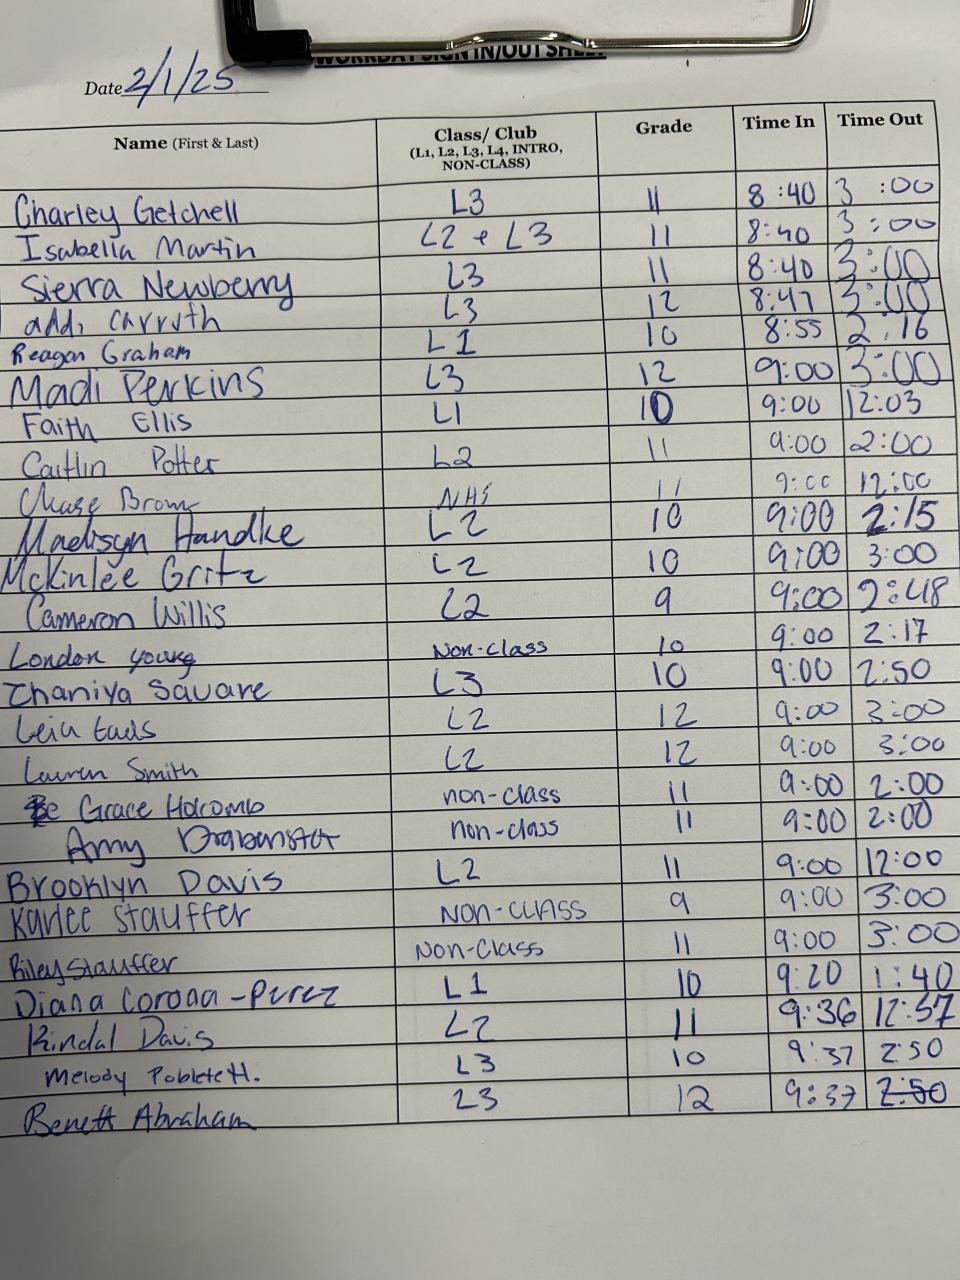 WORKDAY SIGN IN/OUT SHEET
Date 2/1/25
Name (First & Last) Class/ Club (L1, L2, L3, L4, INTRO, NON-CLASS) Grade Time In Time Out
Charley Getchell L3 11 8:40 3:00
Isabella Martin L2 + L3 11 8:40 3:00
Sierra Newberry L3 11 8:40 3:00
Addi Carruth L3 12 8:47 3:00
Reagan Graham L1 10 8:55 2:16
Madi Perkins L3 12 9:00 3:00
Faith Ellis L1 10 9:00 12:03
Caitlin Potter L2 11 9:00 2:00
Chase Brown NHS 11 9:00 12:00
Madisyn Handke L2 10 9:00 2:15
Mckinlee Gritz L2 10 9:00 3:00
Cameron Willis L2 9 9:00 2:48
London young Non-class 10 9:00 2:17
Zhaniya Savare L3 10 9:00 2:50
Leia Eads L2 12 9:00 3:00
Lauren Smith L2 12 9:00 3:00
Grace Holcomb non-class 11 9:00 2:00
Amy Drabenstot non-class 11 9:00 2:00
Brooklyn Davis L2 11 9:00 12:00
Karlee Stauffer NON-CLASS 9 9:00 3:00
Riley Stauffer Non-Class 11 9:00 3:00
Diana Corona-Perez L1 10 9:20 1:40
Kindal Davis L2 11 9:36 12:57
Melody Poblete H. L3 10 9:37 2:50
Benett Abraham L3 12 9:37 2:50